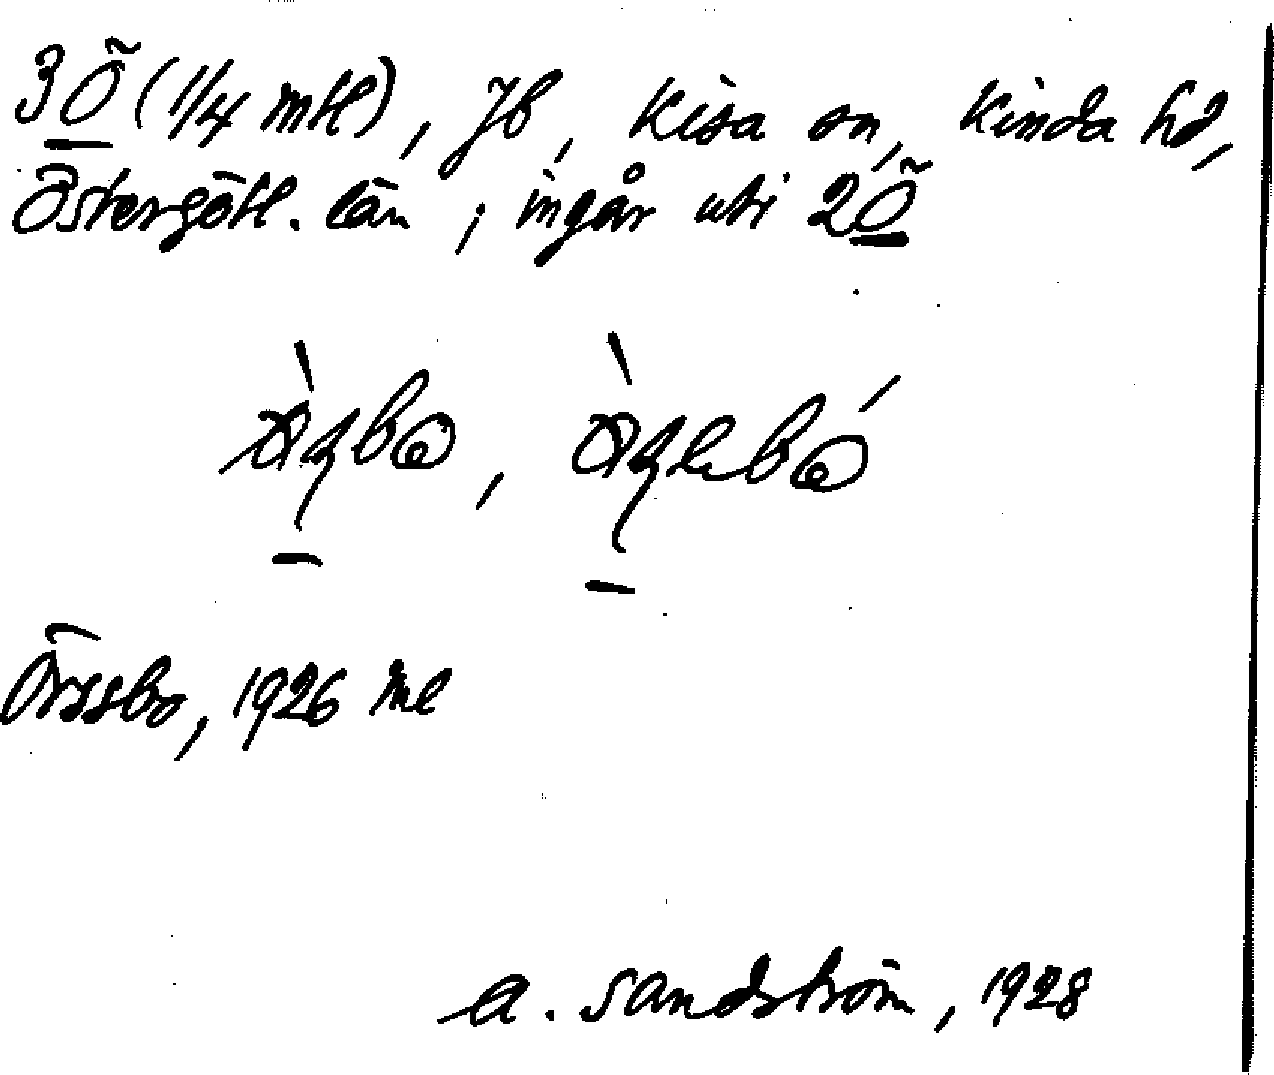 3Ö (1/4 mtl), Jb, Kisa sn, Kinda hd,
Östergötl. län; ingår uti 2Ö
Örssbo, 1926 ml
A. Sandström, 1928